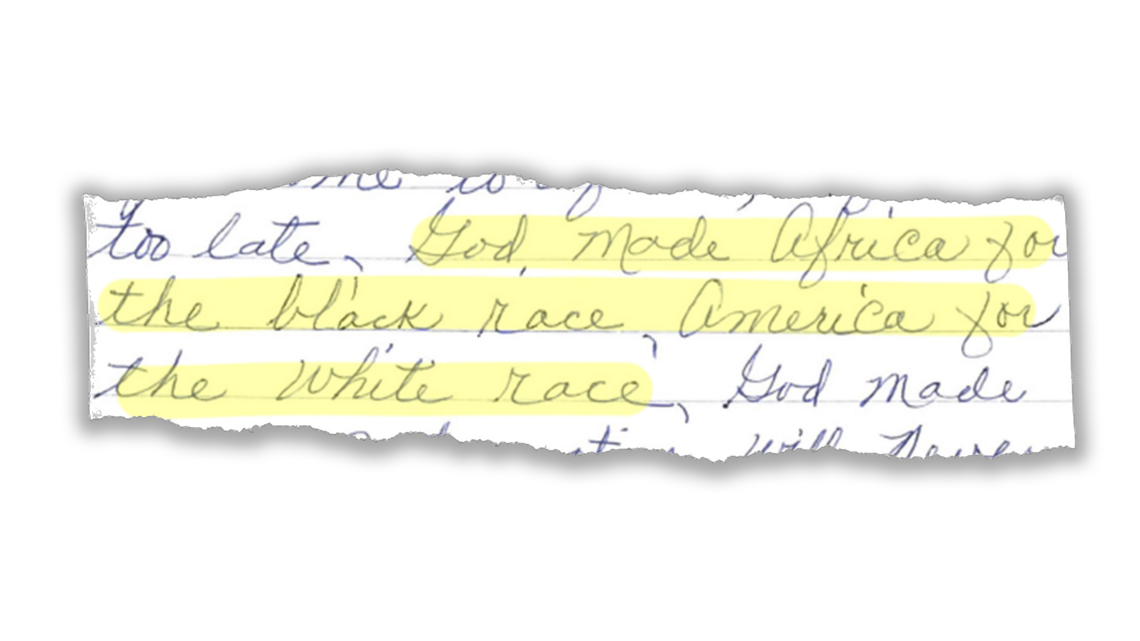 too late, God made Africa for
the black race, America for
the white race, God made
will never